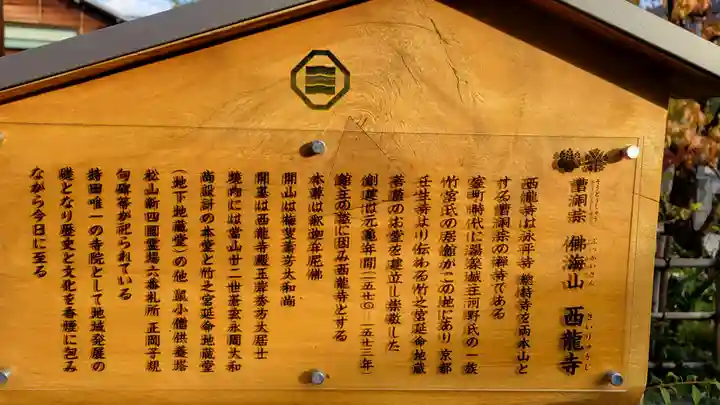 曹洞宗 佛海山 西龍寺
そうとうしゅう ぶっかいさん さいりゅうじ
西龍寺は永平寺 總持寺を両本山と
する曹洞宗の禅寺である
室町時代に湯築城主河野氏の一族
竹宮氏の居館がこの地にあり 京都
壬生寺より伝わる竹之宮延命地蔵
菩薩のお堂を建立し崇敬した
創建は元亀年間(一五七〇-一五七三年)
館主の姓に因み西龍寺とする
本尊は釈迦牟尼佛
開山は梅叟芳大和尚
開基は西龍寺殿玉翁参芳大居士
境内には当山廿二世蒼玄永周大和
尚設計の本堂と竹之宮延命地蔵堂
(地下地蔵堂)の他 鼠小僧供養塔
松山新四国霊場六番札所 正岡子規
句碑等が祀られている
持田唯一の寺院として地域発展の
礎となり歴史と文化を香煙に包み
ながら今日に至る